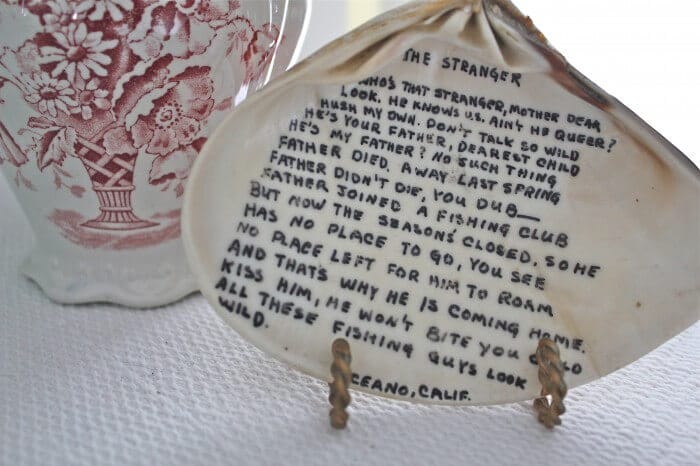 THE STRANGER
WHO'S THAT STRANGER, MOTHER DEAR
LOOK, HE KNOWS US, AIN'T HE QUEER?
HUSH MY OWN. DON'T TALK SO WILD
HE'S YOUR FATHER, DEAREST CHILD
HE'S MY FATHER? NO SUCH THING
FATHER DIED, AWAY LAST SPRING
FATHER DIDN'T DIE, YOU DUB—
FATHER JOINED A FISHING CLUB
BUT NOW THE SEASONS' CLOSED, SO HE
HAS NO PLACE TO GO, YOU SEE
NO PLACE LEFT FOR HIM TO ROAM
AND THAT'S WHY HE IS COMING HOME.
KISS HIM, HE WON'T BITE YOU
ALL THESE FISHING GUYS LOOK
WILD.
CEANO, CALIF.